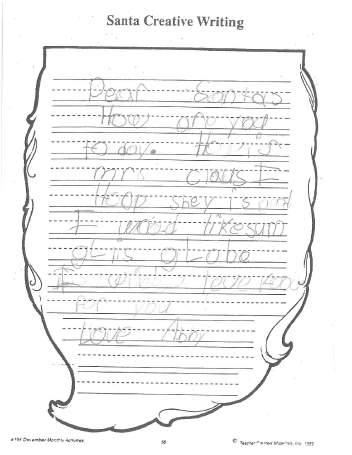 Santa Creative Writing
Dear Santas
How are you
to day. How is
mrs claus I
Heop shey is
I woud like sum
gLis gLobe
I will leave
for you
Love
#194 December Monthly Activities
© Teacher Created Materials, Inc.